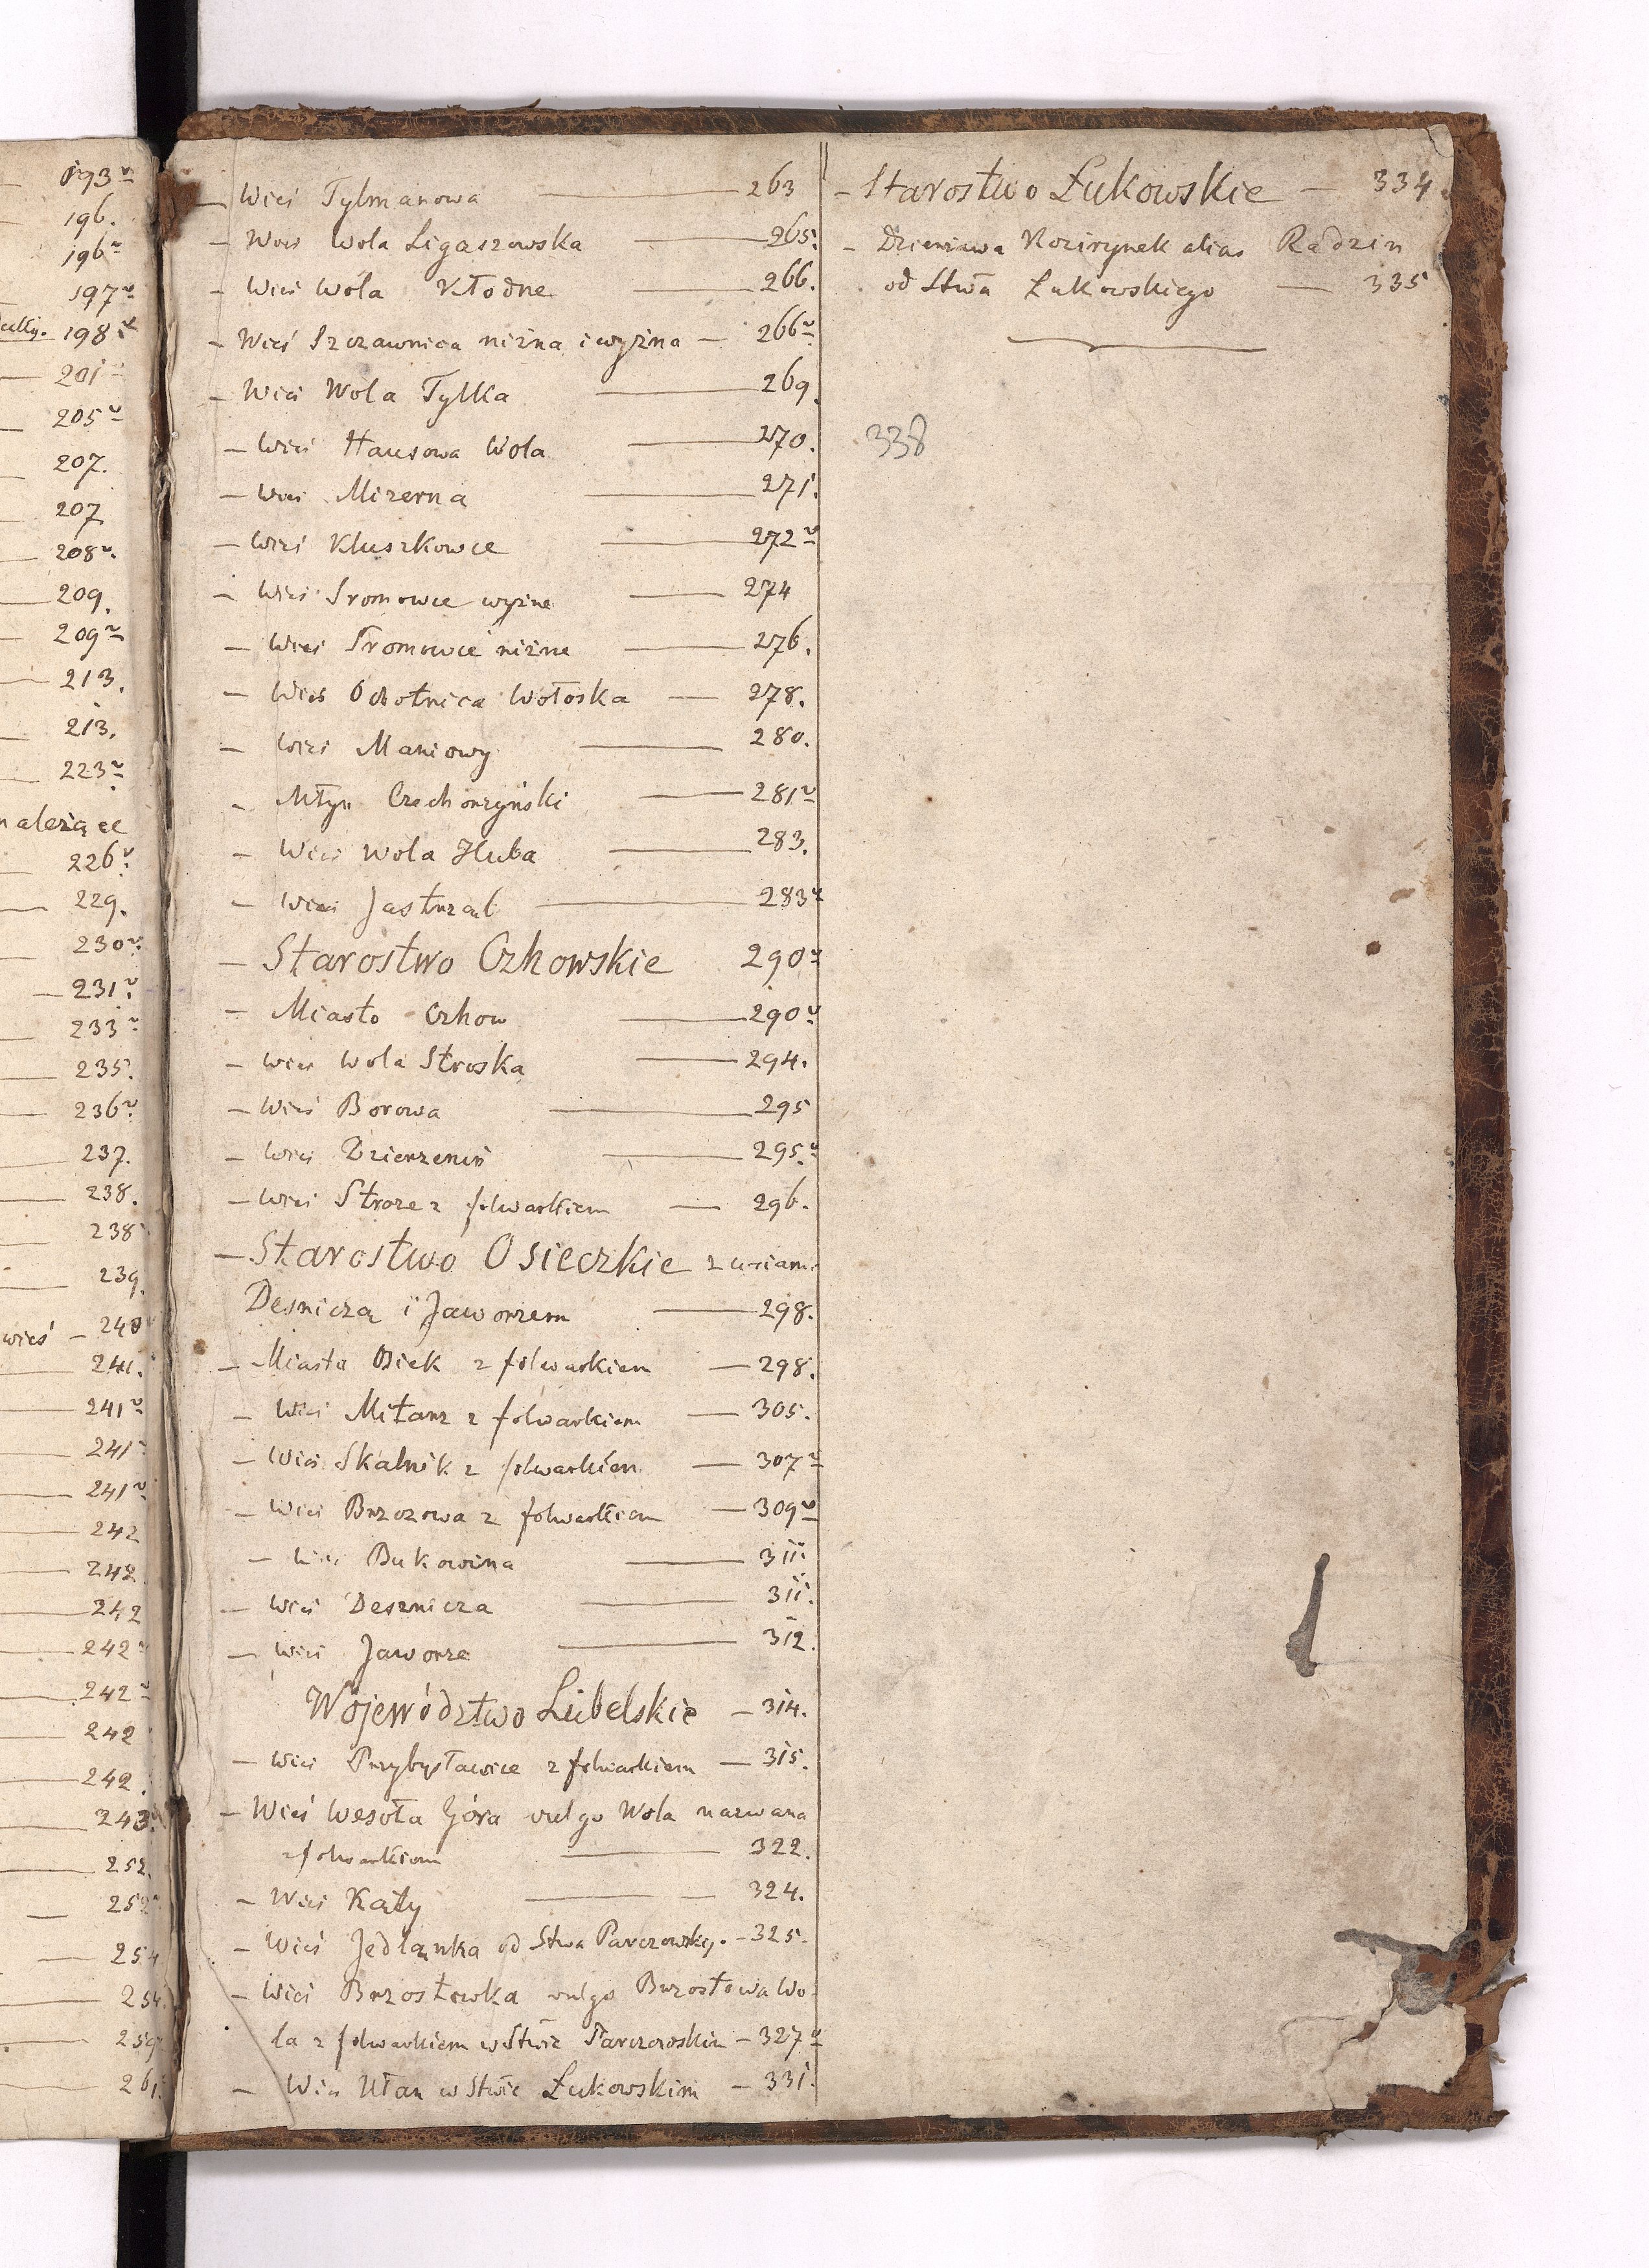 193v
196.
196v
197v
198v
201
205v
207.
207
208v.
209.
209v
213.
213.
223v
należące
226v
229.
230v.
231v
233v
235.
236v
237.
238.
238
239
wieś — 240
241.
241v
241v
241v
242
242
242
242v
242v
242
242.
243.
252.
252
254
254
259
261
— Wieś Tylmanowa — 263
— Wieś Wola Ligaszowska — 265.
— Wieś Wola Kłodne — 266.
— Wieś Szczawnica niżna i wyżna — 266v
— Wieś Wola Tylka — 269.
— Wieś Hausowa Wola — 270.
— Wieś Mizerna — 271.
— Wieś Kluszkowce — 272v
— Wieś Sromowce wyżne — 274
— Wieś Sromowce niżne — 276.
— Wieś Ochotnica Wołoska — 278.
— Wieś Maniowy — 280.
— Młyn Czechorzyński — 281v
— Wieś Wola Huba — 283.
— Wieś Jastrząb — 283v
— Starostwo Czhowskie 290v
— Miasto Czhow — 290v
— Wieś Wola Stroska — 294.
— Wieś Borowa — 295
— Wieś Dzierzenin — 295.v
— Wieś Stroze z folwarkiem — 296.
— Starostwo Osieczkie z wsiami
Desnicza i Jaworzem — 298.
— Miasta Osiek z folwarkiem — 298.
— Wieś Mitarz z folwarkiem — 305.
— Wieś Skalnik z folwarkiem — 307v
— Wieś Brzozowa z folwarkiem — 309v
— Wieś Bukowina — 311.
— Wieś Desznicza — 311.
— Wieś Jaworze — 312.
Wojewódźtwo Lubelskie — 314.
— Wieś Przybysławice z folwarkiem — 315.
— Wieś Wesoła Góra vulgo Wola nazwana
z folwarkiem — 322.
— Wieś Kąty — 324.
— Wieś Jedlanka od Stwa Parczowskg. — 325.
— Wieś Brzostowka vulgo Brzostowa Wo-
la z folwarkiem w Stwie Parczowskim — 327v
— Wieś Ułan w Stwie Łukowskim — 331.
— Starostwo Łukowskie — 334.
— Dzierżawa Kozirynek alias Radzin
od Stwa Łukowskiego — 335
338